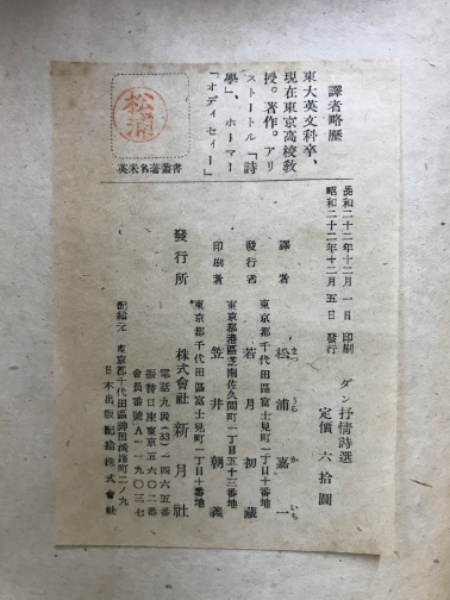 譯者略歴
東大英文科卒、
現在東京高校教
授。著作。アリ
ストートル「詩
學」、ホーマー
「オディセィー」
松浦
英米名著叢書
昭和二十二年十二月一日 印刷
昭和二十二年十二月五日 發行
ダン抒情詩選
定價 六拾圓
譯者 松浦嘉一
まつ うら か いち
東京都千代田區富士見町一丁目十番地
發行者 若月初藏
東京都港區芝南佐久間町一丁目五十三番地
印刷者 笠井朝義
東京都千代田區富士見町一丁目十番地
發行所 株式會社 新月社
電話九段(33)一四六五番
振替口座東京五六〇二番
會員番號A一一九〇三七
配給元 東京都千代田區神田淡路町二ノ九
日本出版配給株式會社